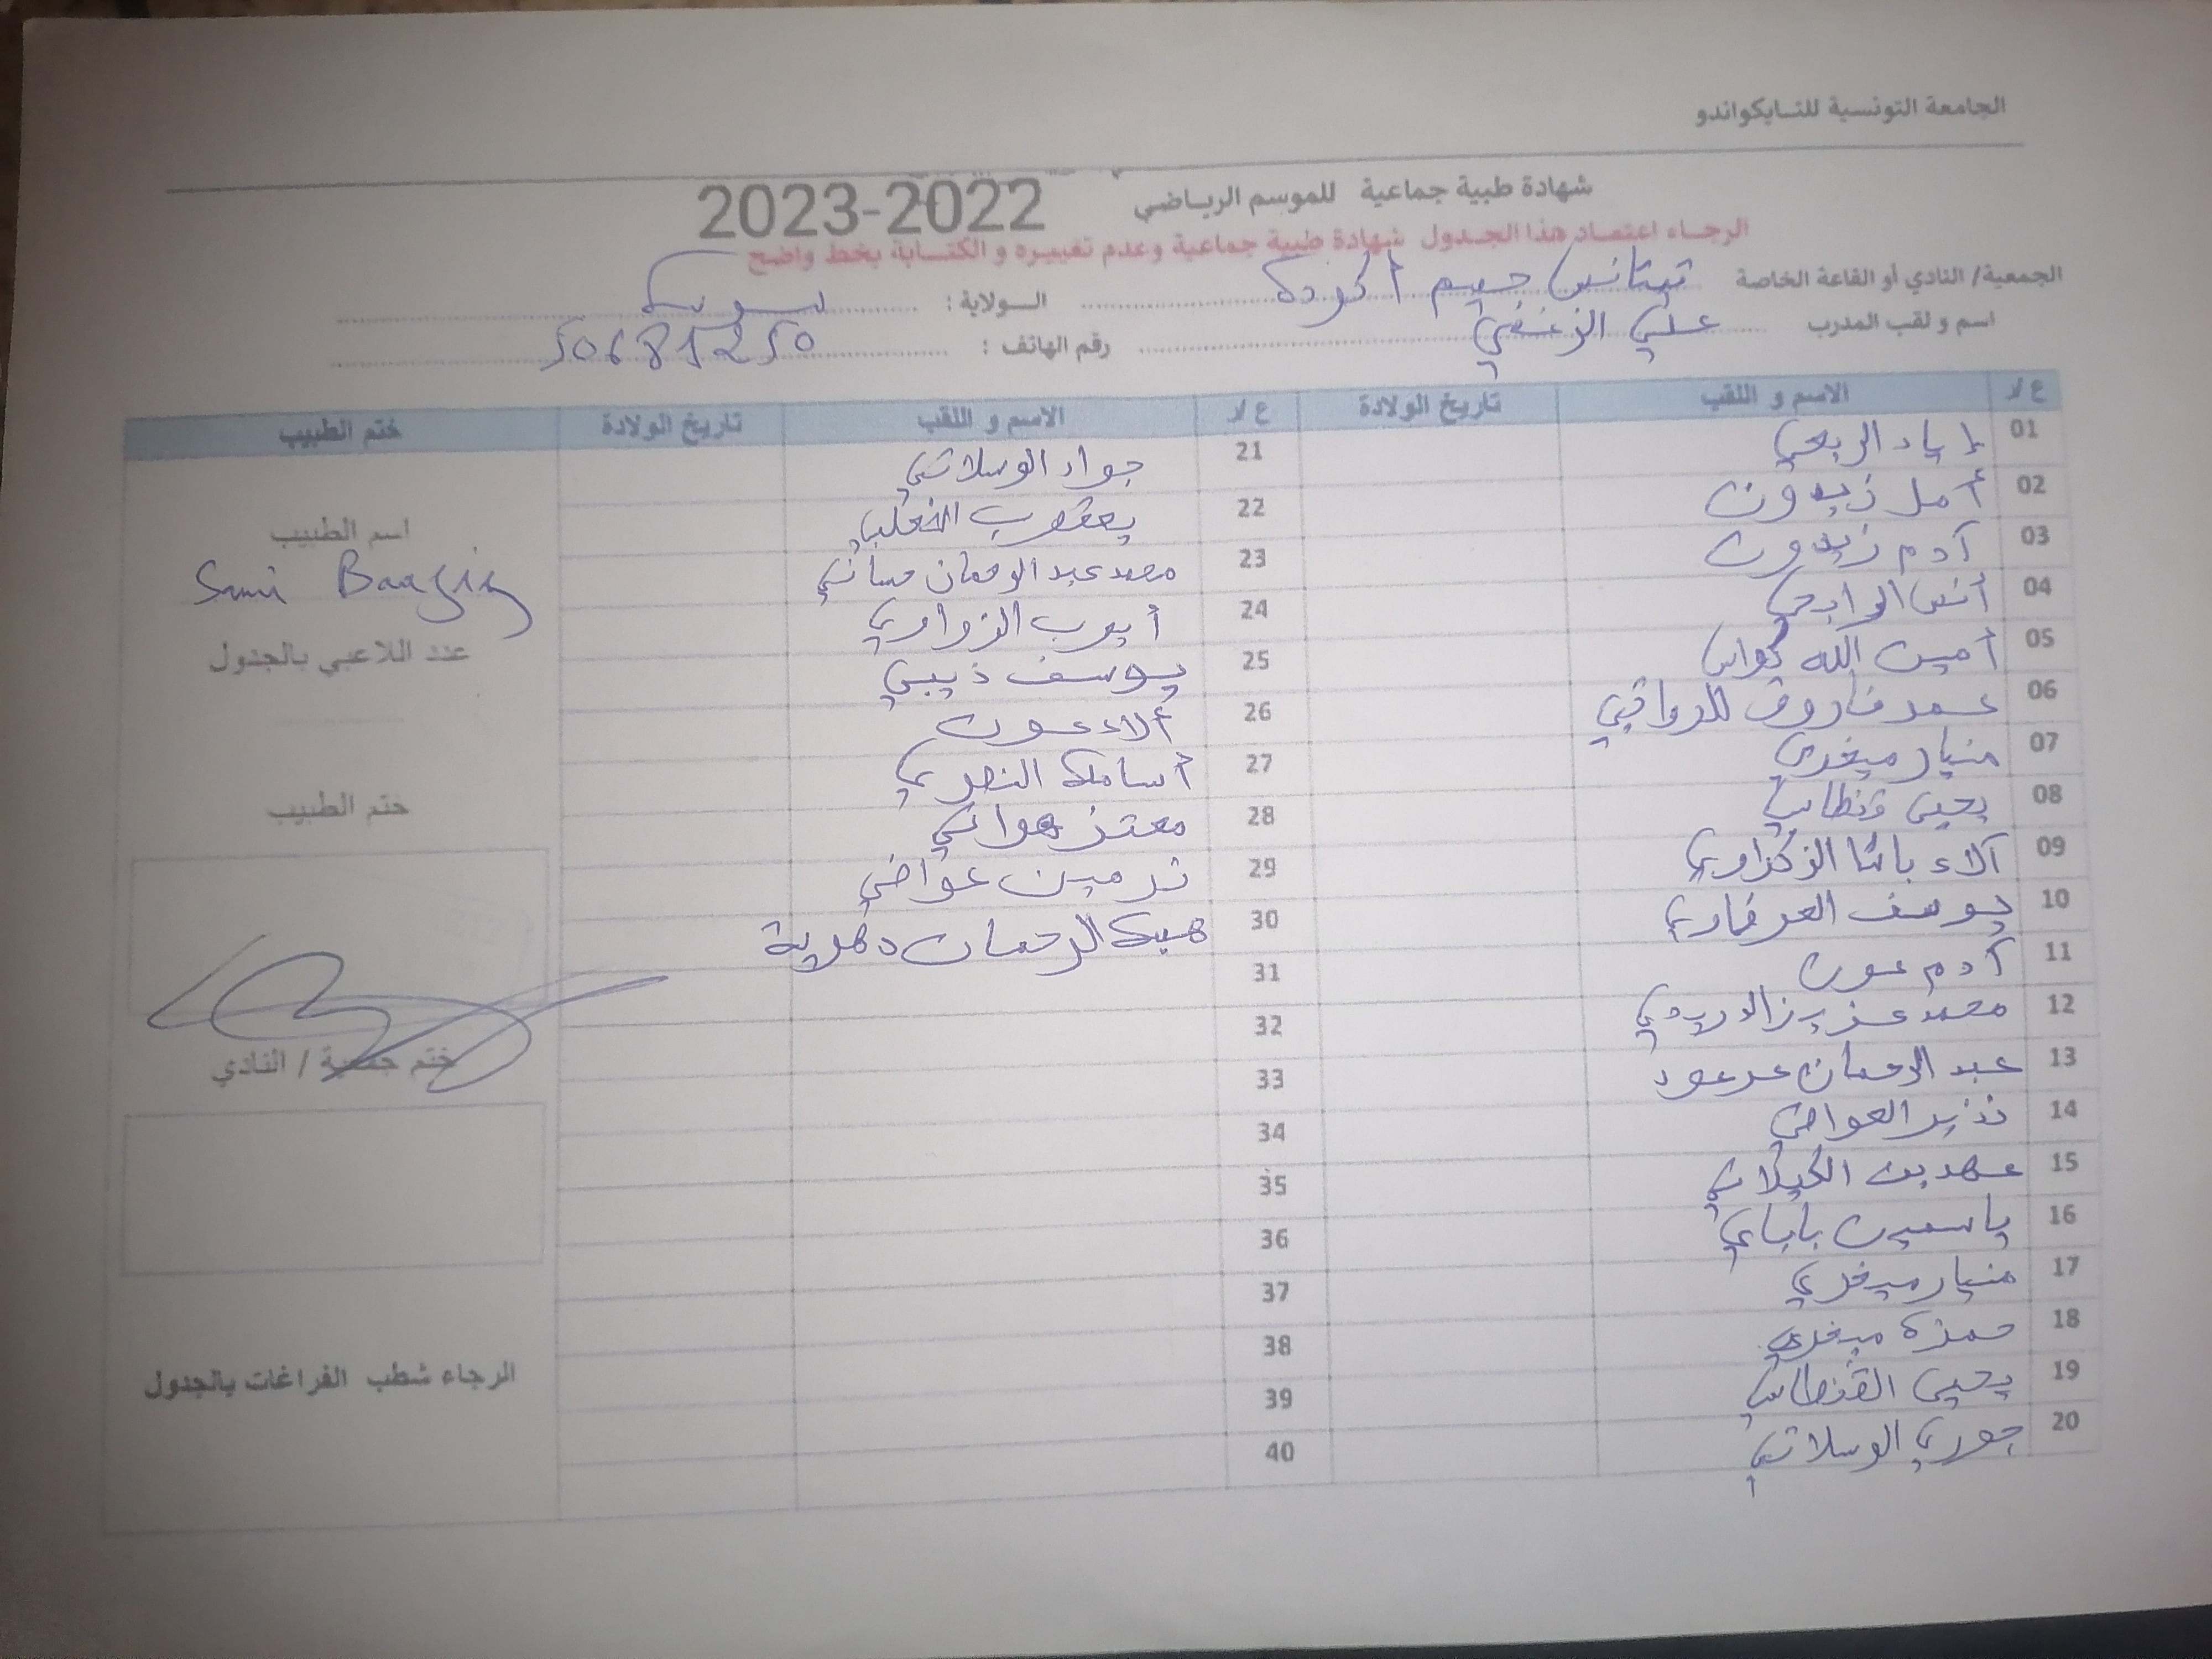 الجامعة التونسية للتايكواندو
شهادة طبية جماعية للموسم الرياضي 2022-2023
الرجاء اعتماد هذا الجدول شهادة طبية جماعية وعدم تغييره و الكتابة بخط واضح
الجمعية/ النادي أو القاعة الخاصة تيتانس جيم أكودة الولاية : سوسة
اسم و لقب المدرب علي الزغفي رقم الهاتف : 50681250
ع/ر الاسم و اللقب تاريخ الولادة ع/ر الاسم و اللقب تاريخ الولادة ختم الطبيب
01 إياد الربعي
02 أمل زيدون
03 آدم زيدون
04 أنس الرابحي
05 أمين الله كواس
06 عمر فاروق الدواقي
07 منيار ميغري
08 يحيى قنطاس
09 آلاء باشا الزكراوي
10 يوسف العرفاوي
11 آدم عون
12 محمد عزيز الدريدي
13 عبد الرحمان مرعود
14 نذير العواضي
15 عهد بن الكيلاني
16 ياسمين باباي
17 منيار ميغري
18 حمزة ميغري
19 يحيى القنطاس
20 جوري الوسلاتي
21 جواد الوسلاتي
22 يعقوب
23 محمد عبد الرحمان حساني
24 أيوب الزواري
25 يوسف ذيبي
26 ألاء عون
27 أسامة النصري
28 معتز هواني
29 نرمين عواضي
30 هبة الرحمان دهرية
31
32
33
34
35
36
37
38
39
40
اسم الطبيب
Sami
عدد اللاعبي بالجدول
ختم الطبيب
ختم جمعية / النادي
الرجاء شطب الفراغات بالجدول